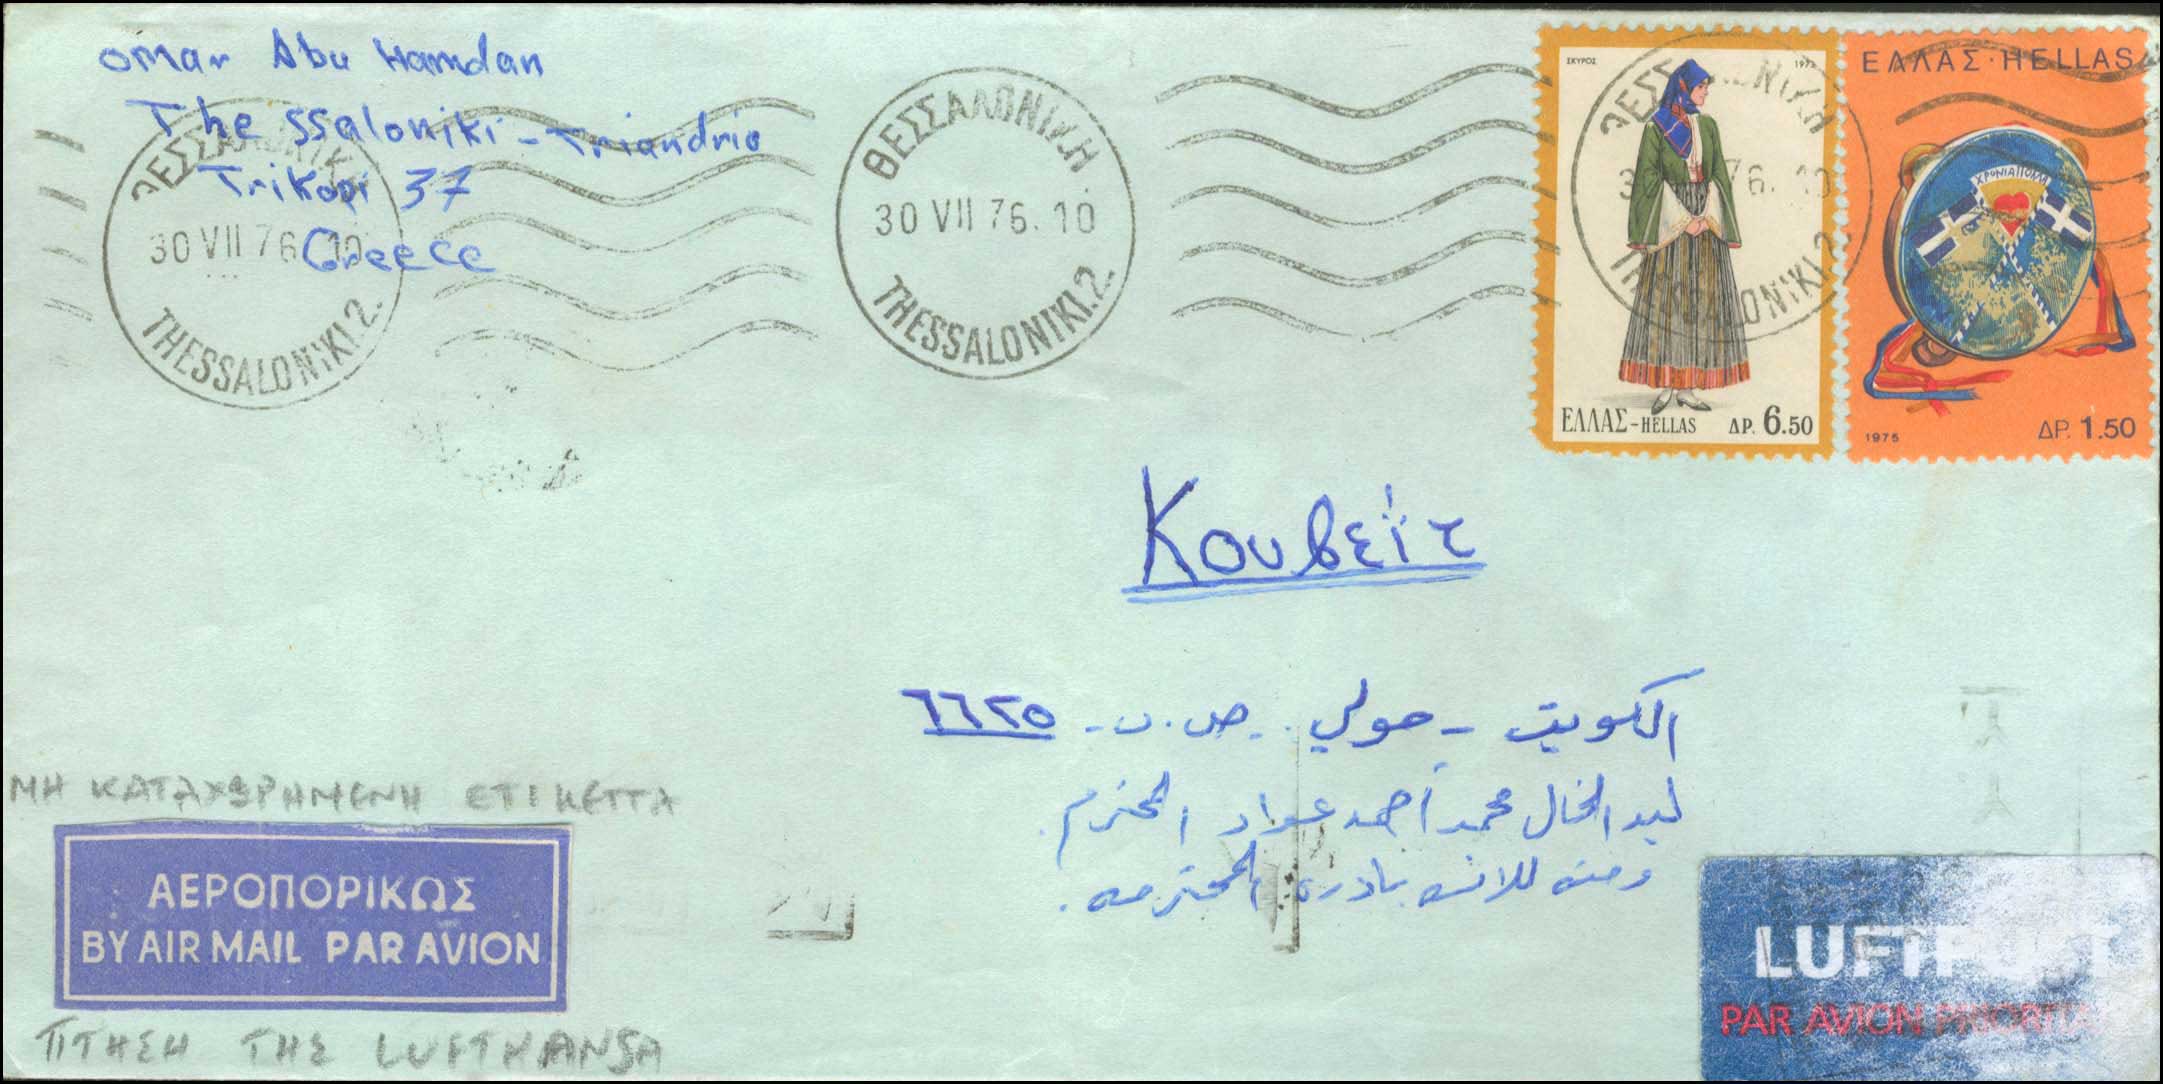 omar Abu Hamdan
Thessaloniki - Triandria
Trikopi 37
Greece
ΘΕΣΣΑΛΟΝΙΚΗ
30 VII 76 10
THESSALONIKI.2.
ΘΕΣΣΑΛΟΝΙΚΗ
30 VII 76. 10
THESSALONIKI.2.
ΣΚΥΡΟΣ
ΕΛΛΑΣ-HELLAS ΔΡ. 6.50
THESSALONIKI.2.
ΕΛΛΑΣ·HELLAS
ΧΡΟΝΙΑ ΠΟΛΛΑ
1975 ΔΡ. 1.50
Κουβεϊτ
الكويت - حولي - ص.ب - ٦٦٢٥
ليد الخال محمد أحمد عواد المحترم
ومنه للانسه نادره المحترمه.
ΜΗ ΚΑΤΑΧΩΡΗΜΕΝΗ ΕΤΙΚΕΤΤΑ
ΑΕΡΟΠΟΡΙΚΩΣ
BY AIR MAIL PAR AVION
ΠΤΗΣΗ ΤΗΣ LUFTHANSA
LUFTPOST
PAR AVION PRIORITAIRE